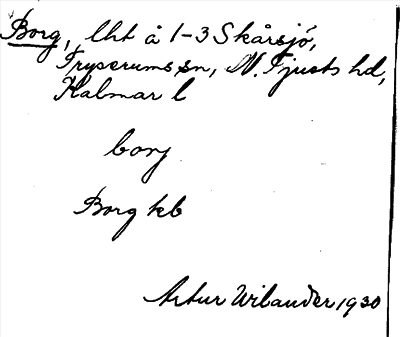 Borg, lht å 1-3 Skårsjö,
Tryserums sn, N. Tjusts hd,
Kalmar l
borj
Borg kb
Artur Wilander 1930